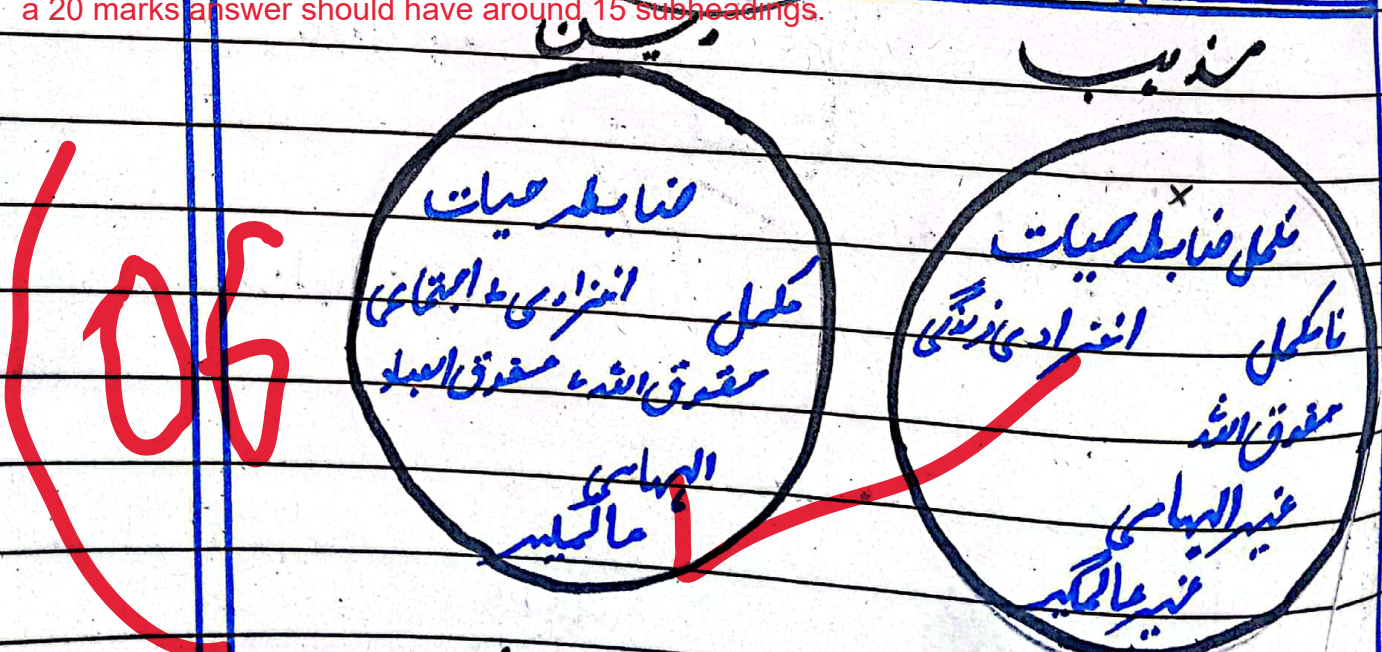 a 20 marks answer should have around 15 subheadings.
مذہب
دین
x
مکمل ضابطہ حیات
نامکمل انفرادی زندگی
حقوق اللہ
غیر الہامی
غیر عالمگیر
ضابطہ حیات
مکمل انفرادی و اجتماعی
حقوق اللہ، حقوق العباد
الہامی
عالمگیر
06